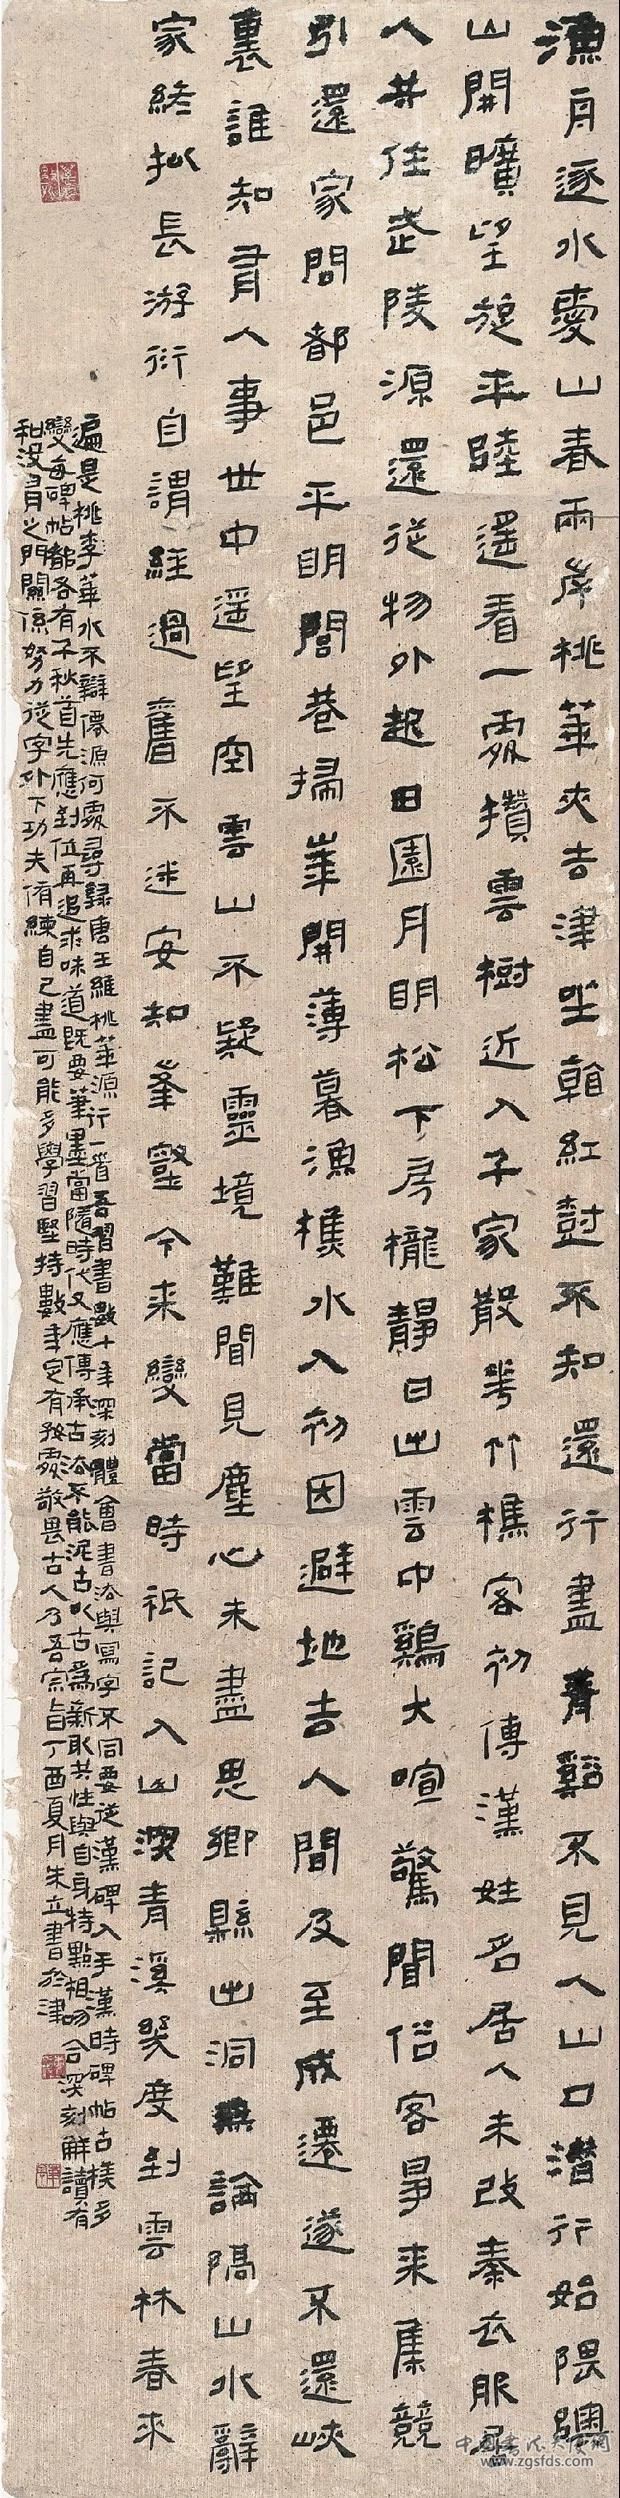 漁舟逐水愛山春兩岸桃華夾去津坐看紅對不知還行盡青谿不見人山口潛行始隈隩
山開曠望旋平陸遥看一處攢雲樹近入千家散花竹樵客初傳漢姓名居人未改秦衣服居
人共住武陵源還從物外起田園月明松下房櫳靜日出雲中鷄犬喧驚聞俗客爭来集競
引還家問都邑平明閭巷掃華開薄暮漁樵水入初因避地去人間及至成遷遂不還峽
裏誰知有人事世中遥望空雲山不疑靈境難聞見塵心未盡思鄉縣出洞無論隔山水辭
家終拟長游衍自謂經過舊不迷安知峯壑今来變當時祇記入山深青溪幾度到雲林春来
遍是桃李華水不辯僊源何處尋録唐王維桃華源行一首吾習書數十年深刻體會書法與寫字不同要從漢碑入手漢時碑帖古樸多
變每碑帖都各有千秋首先應到位再追求味道既要筆墨當隨時代又應傳承古法不能泥古以古爲新取共性與自身特點相吻合深刻解讀有
和没有之門關係努力從字外下功夫脩練自己盡可能多學習堅持數年定有發處敬畏古人乃吾宗旨丁酉夏月朱立書於津
中國書法大厦網
www.zgsfds.com